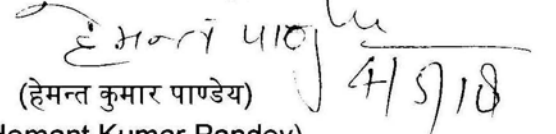 हेमन्त पाण्डेय
4/5/18
(हेमन्त कुमार पाण्डेय)
(Hemant Kumar Pandey)